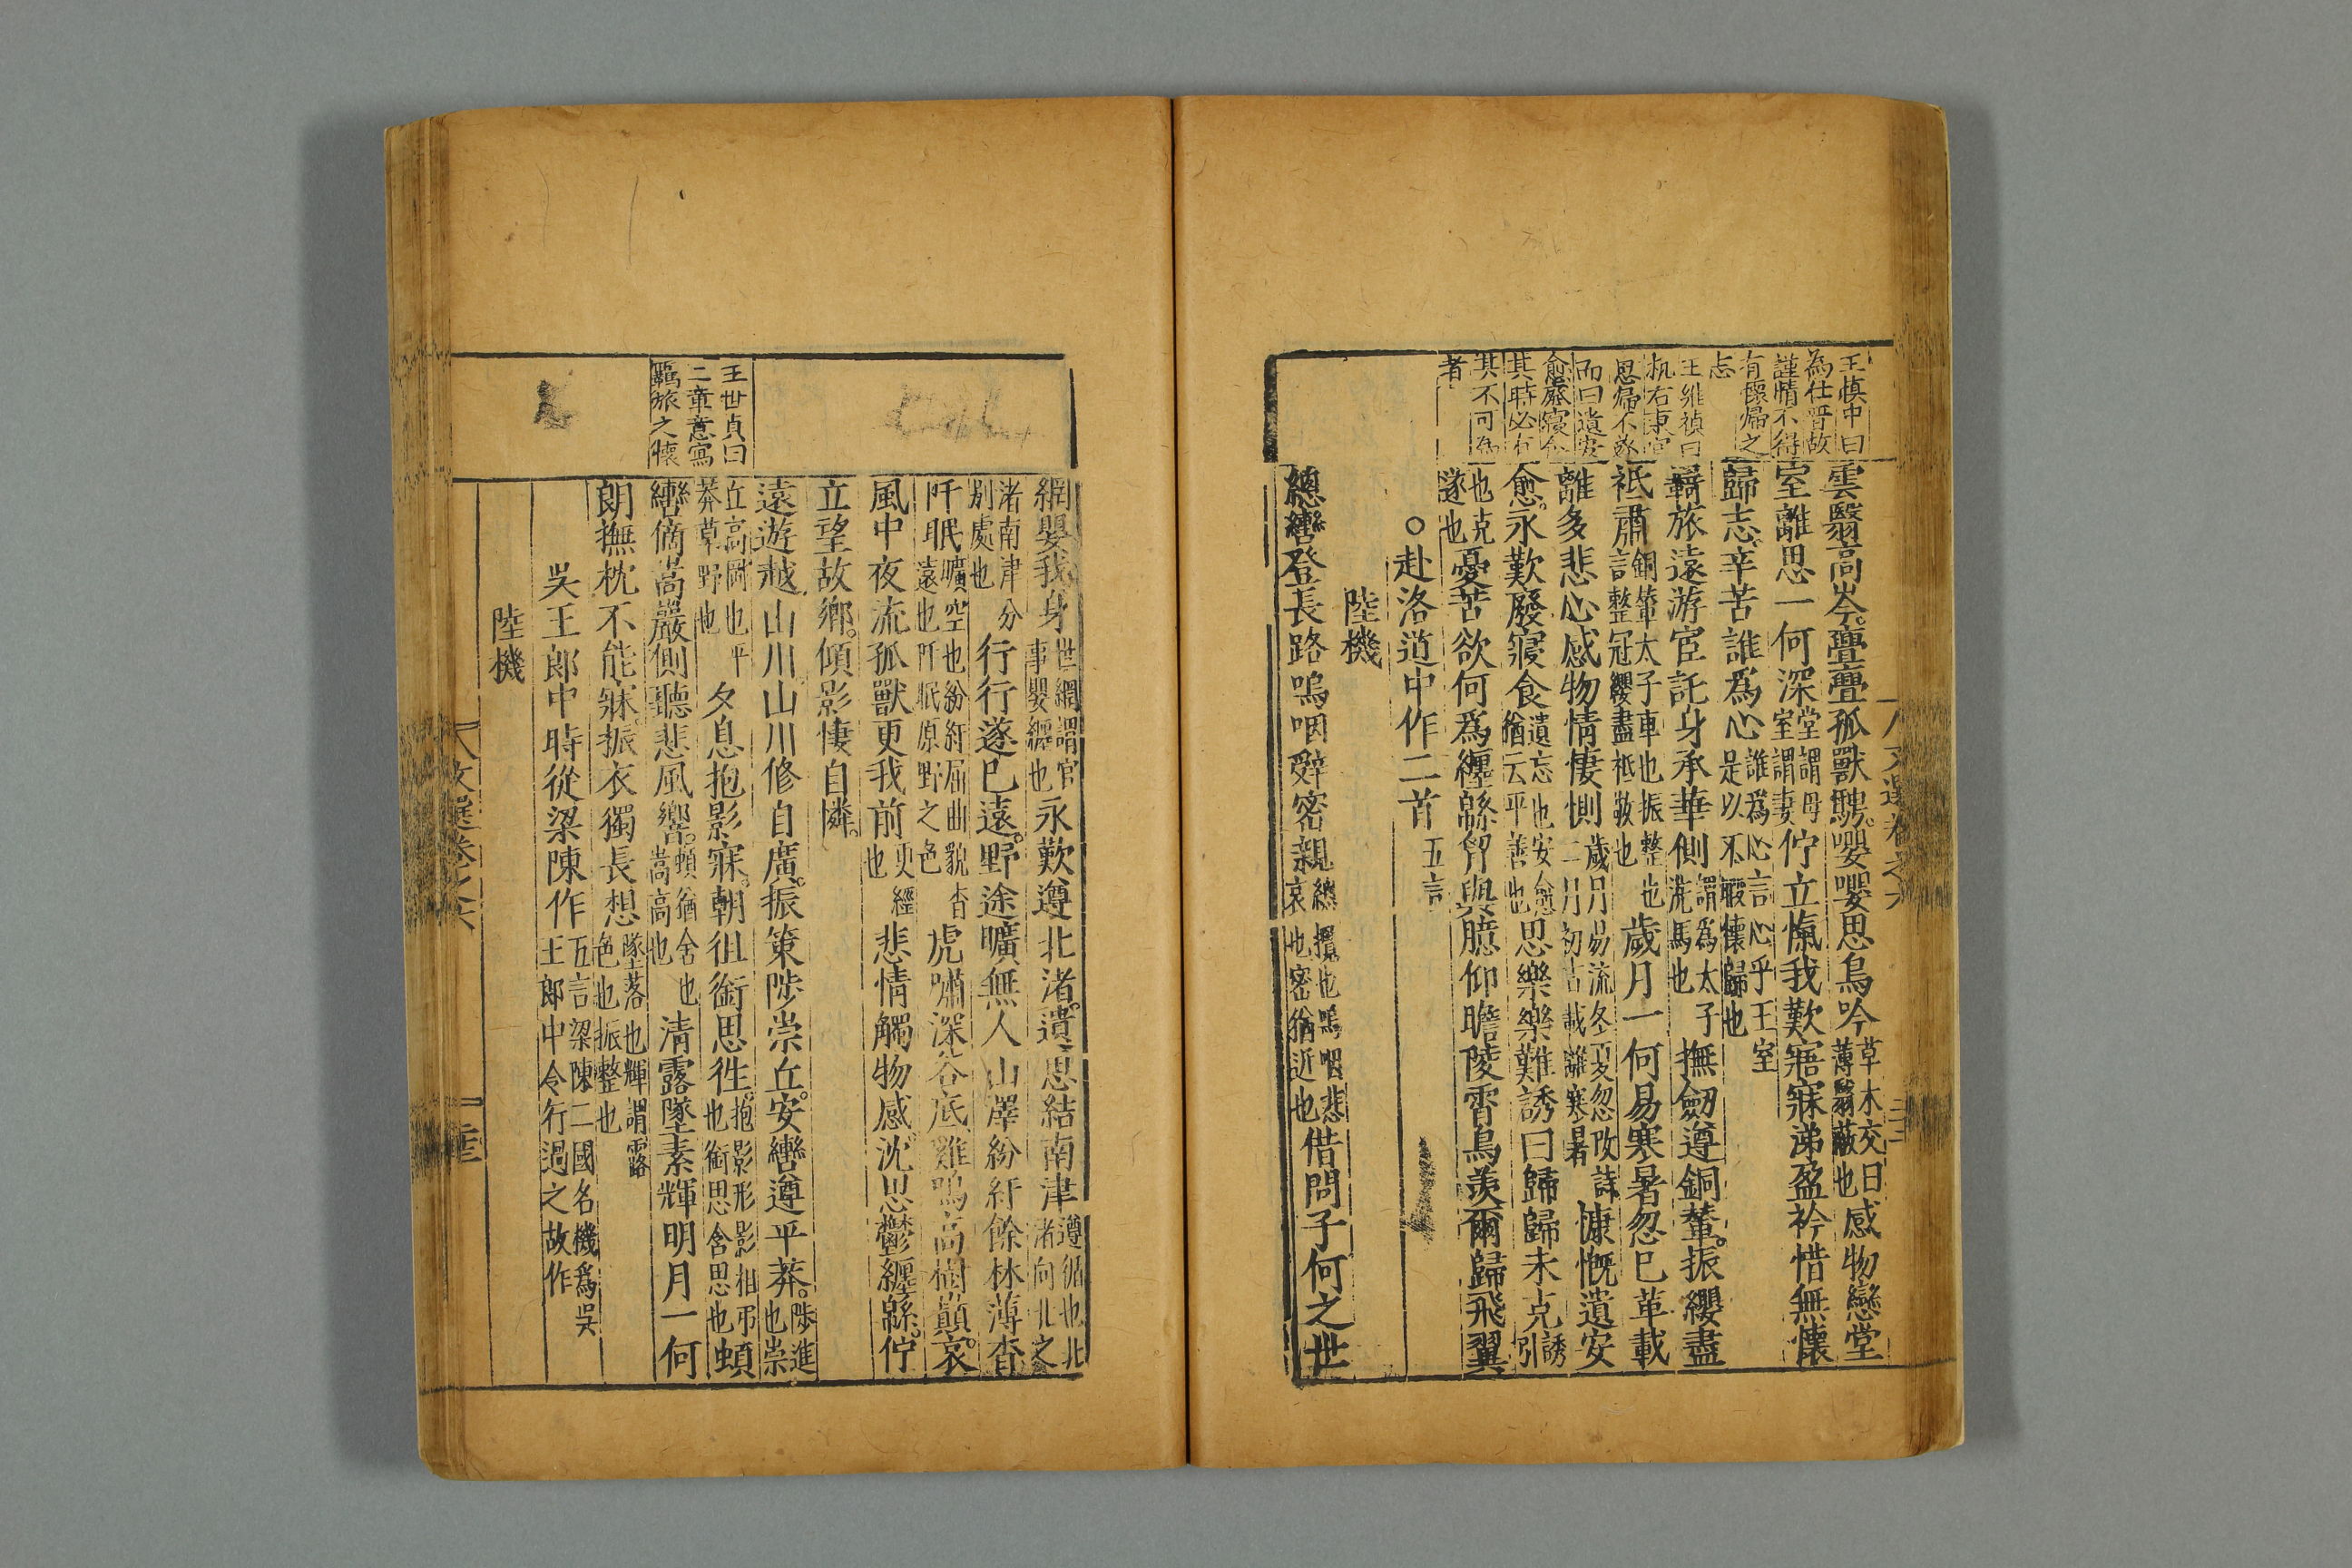 王慎中曰
為仕晋故
謹情不得
有懷歸之
志
王維禎曰
机右東宮
思歸不遂
而曰遺安
愈廢寢食
其時必有
其不可為
者
雲翳高岑亹亹孤獸騁嚶嚶思鳥吟草木交曰薄翳蔽也感物戀堂
室離思一何深堂謂母室謂妻佇立愾我歎寤寐涕盈衿惜無懷
歸志辛苦誰為心誰為心言心乎王室是以不暇懷歸也
羇旅遠游宦託身承華側謂為太子洗馬也撫劒遵銅輦振纓盡
祗肅銅輦太子車也振整也言整冠纓盡祗敬也歲月一何易寒暑忽已革載
離多悲心感物情悽惻歲月易流冬夏忽改詩二月初吉載離寒暑慷慨遺安
愈永歎廢寢食遺忘也安愈猶云平善也思樂樂難誘曰歸歸未克誘引
也克遂也憂苦欲何為纏緜胷與臆仰瞻陵霄鳥羨爾歸飛翼
○赴洛道中作二首五言
陸機
總轡登長路嗚咽辭密親總攬也嗚咽悲哀也密猶近也借問子何之世
網嬰我身世網謂官事嬰纏也永歎遵北渚遺思結南津遵循也北渚向北之
渚南津分别處也行行遂已遠野途曠無人山澤紛紆餘林薄杳
阡眠曠空也紛紆屈曲貌杳遠也阡眠原野之色虎嘯深谷底雞鳴高樹巔哀
風中夜流孤獸更我前更經也悲情觸物感沈思鬱纏緜佇
立望故鄉傾影悽自憐
遠遊越山川山川修自廣振策陟崇丘安轡遵平莽陟進也崇
丘高岡也平莽草野也夕息抱影寐朝徂銜思徃抱影形影相弔也銜思含思也頓
轡倚嵩巖側聽悲風響頓猶舍也嵩高也清露墜素輝明月一何
朗撫枕不能寐振衣獨長想墜落也輝謂露色也振整也
吳王郎中時從梁陳作五言梁陳二國名機為吳王郎中令行過之故作
陸機
王世貞曰
二章意寫
羈旅之懷
文選卷之六